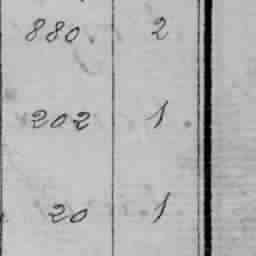 880. 2
202 1
20 1